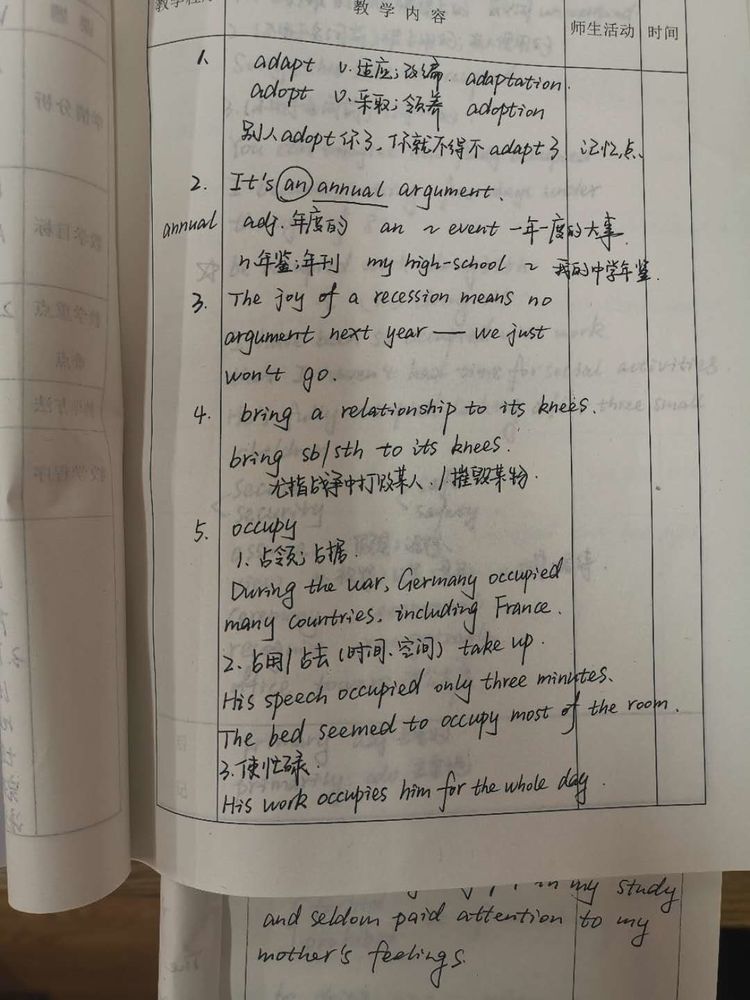 教学内容
师生活动 时间
1. adapt v.适应;改编. adaptation.
adopt v.采取;领养 adoption
别人adopt你了,你就不得不adapt了 记忆点.
2. It's an annual argument.
annual adj.年度的 an ~ event 一年一度的大事.
n.年鉴;年刊 my high-school ~ 我的中学年鉴.
3. The joy of a recession means no
argument next year — we just
won't go.
4. bring a relationship to its knees.
bring sb/sth to its knees.
尤指战争中打败某人./摧毁某物.
5. occupy
1.占领;占据.
During the war, Germany occupied
many countries, including France.
2.占用/占去(时间、空间) take up.
His speech occupied only three minutes.
The bed seemed to occupy most of the room.
3.使忙碌.
His work occupies him for the whole day.
in my study
and seldom paid attention to my
mother's feelings.